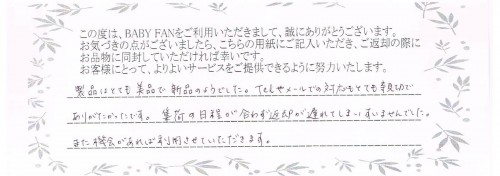 この度は、BABY FANをご利用いただきまして、誠にありがとうございます。
お気づきの点がございましたら、こちらの用紙にご記入いただき、ご返却の際に
お品物に同封していただければ幸いです。
お客様にとって、よりよいサービスをご提供できるように努力いたします。
製品はとても美品で新品のようでした。Telやメールでの対応もとても親切で
ありがたかったです。集荷の日程が合わず返却が遅れてしまいすいませんでした。
また機会があれば利用させていただきます。